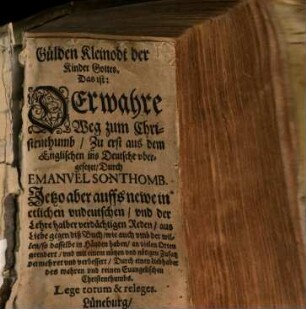 Gülden Kleinodt der
Kinder Gottes.
Das ist:
Der wahre
Weg zum Chri-
stenthumb / Zu erst aus dem
Englischen ins Deutsche vber-
gesetzet / Durch
EMANVEL SONTHOMB.
Jetzo aber auffs newe in
etlichen vndeutschen / vnd der
Lehre halber verdächtigen Reden / aus
Liebe gegen diß Buch / wie auch vmb der
/ so dasselbe in Händen haben / an vielen Orten
geendert / vnd mit einem nützen vnd nötigen Zusatz
vermehret vnd verbessert / Durch einen liebhaber
des wahren vnd reinen Euangelischen
Christenthumbs.
Lege totum & releges.
Lüneburg /